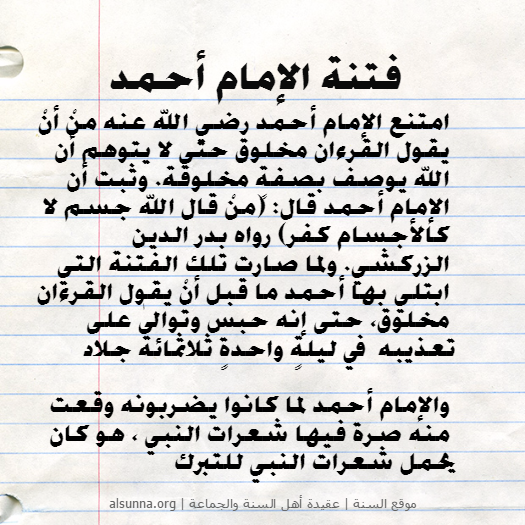 فتنة الإمام أحمد
امتنع الإمام أحمد رضي الله عنه منْ أنْ
يقول القرءان مخلوق حتى لا يتوهم أن
الله يوصف بصفةٍ مخلوقة. وثبت أن
الإمام أحمد قال: (منْ قال الله جسم لا
كالأجسام كفر) رواه بدر الدين
الزركشي. ولما صارت تلك الفتنة التي
ابتلي بها أحمد ما قبل أنْ يقول القرءان
مخلوق، حتى إنه حبس وتوالى على
تعذيبه في ليلةٍ واحدةٍ ثلاثمائة جلاد
والإمام أحمد لما كانوا يضربونه وقعت
منه صرة فيها شعرات النبي ، هو كان
يحمل شعرات النبي للتبرك
موقع السنة | عقيدة أهل السنة والجماعة | alsunna.org